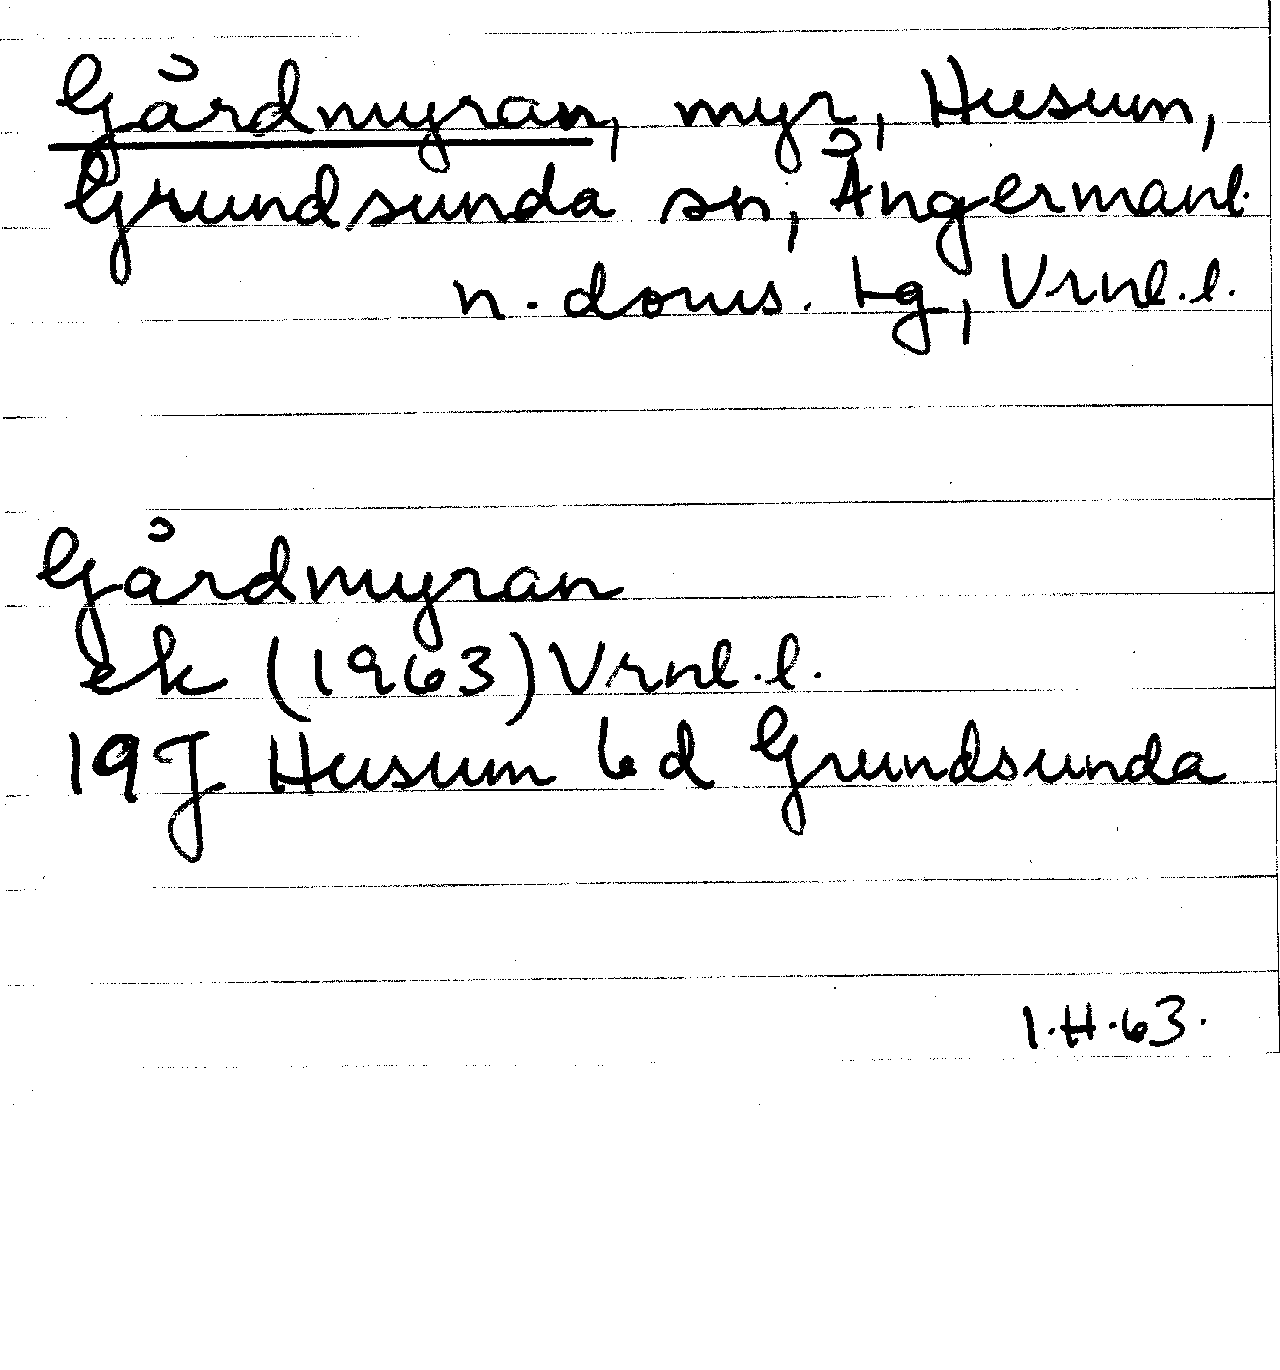 Gårdmyran, myr, Husum,
Grundsunda sn, Ångermanl.
n. doms. tg, Vrnl. l.
Gårdmyran
ek (1963) Vrnl. l.
19J Husum 6d Grundsunda
I.H.63.